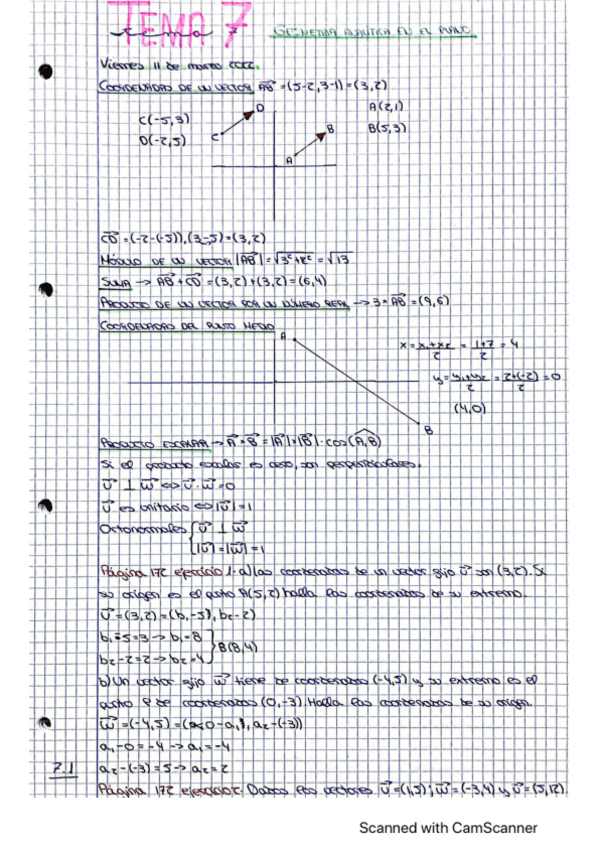 TEMA 7
tema
GEOMETRÍA ANALÍTICA EN EL PLANO
Viernes 11 de marzo 2022.
COORDENADAS DE UN VECTOR AB=(5-2,3-1)=(3,2)
C(-5,3)
D(-2,5)
D
C
B
A
A(2,1)
B(5,3)
CD=(-2-(-5)),(3-5)=(3,2)
MÓDULO DE UN VECTOR |AB|=√3²+2²=√13
SUMA → AB+CD=(3,2)+(3,2)=(6,4)
PRODUCTO DE UN VECTOR POR UN NÚMERO REAL → 3×AB=(9,6)
COORDENADAS DEL PUNTO MEDIO
A
B
x=x₁+x₂/2=1+7/2=4
y=y₁+y₂/2=2+(-2)/2=0
(4,0)
PRODUCTO ESCALAR → A×B=|A|×|B|·cos(A,B)
Si el producto escalar es cero, son perpendiculares.
U ⊥ W ⇔ U·W=0
U es unitario ⇔ |U|=1
Ortonormales { U ⊥ W
|U|=|W|=1
Página 172 ejercicio 1- a) Las coordenadas de un vector fijo U son (3,2). Si
su origen es el punto A(5,2) halla las coordenadas de su extremo.
U=(3,2)=(b₁-5), b₂-2)
b₁-5=3→b₁=8
b₂-2=2→b₂=4
} B(8,4)
b) Un vector fijo W tiene de coordenadas (-4,5) y su extremo es el
punto P de coordenadas (0,-3). Halla las coordenadas de su origen.
W=(-4,5)=(0-a₁), a₂-(-3))
a₁-0=-4→a₁=-4
a₂-(-3)=5→a₂=2
7.1
Página 172 ejercicio 2. Dados los vectores U=(1,5); W=(-3,4) y U=(5,12).
Scanned with CamScanner